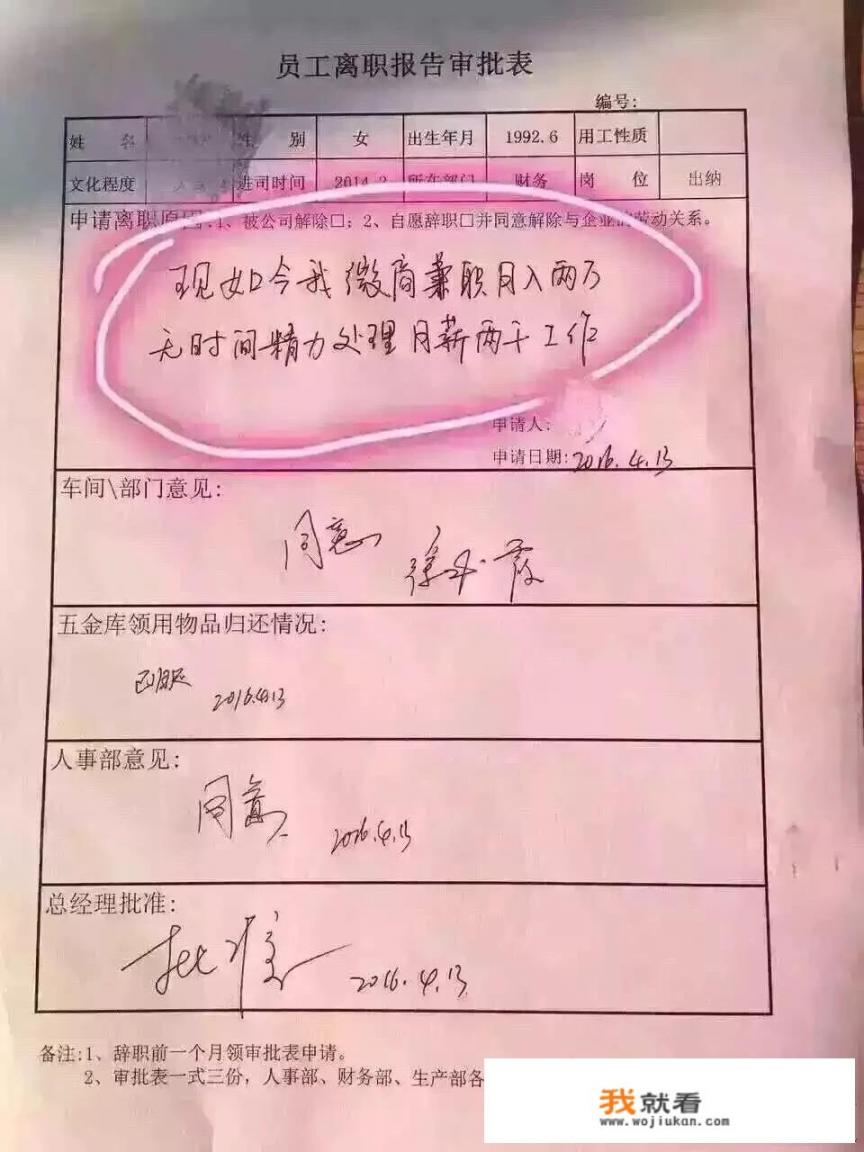 员工离职报告审批表
编号:
姓 名 性 别 女 出生年月 1992.6 用工性质
文化程度 进司时间 2014.2 所在部门 财务 岗 位 出纳
申请离职原因:1、被公司解除□；2、自愿辞职□并同意解除与企业的劳动关系。
现如今我微商兼职月入两万
无时间精力处理月薪两千工作
申请人:
申请日期:2016.4.13
车间\部门意见:
同意
五金库领用物品归还情况:
2016.4.13
人事部意见:
同意
2016.4.13
总经理批准:
批准
2016.4.13
备注:1、辞职前一个月领审批表申请。
2、审批表一式三份，人事部、财务部、生产部各
我就看
www.wojiukan.com